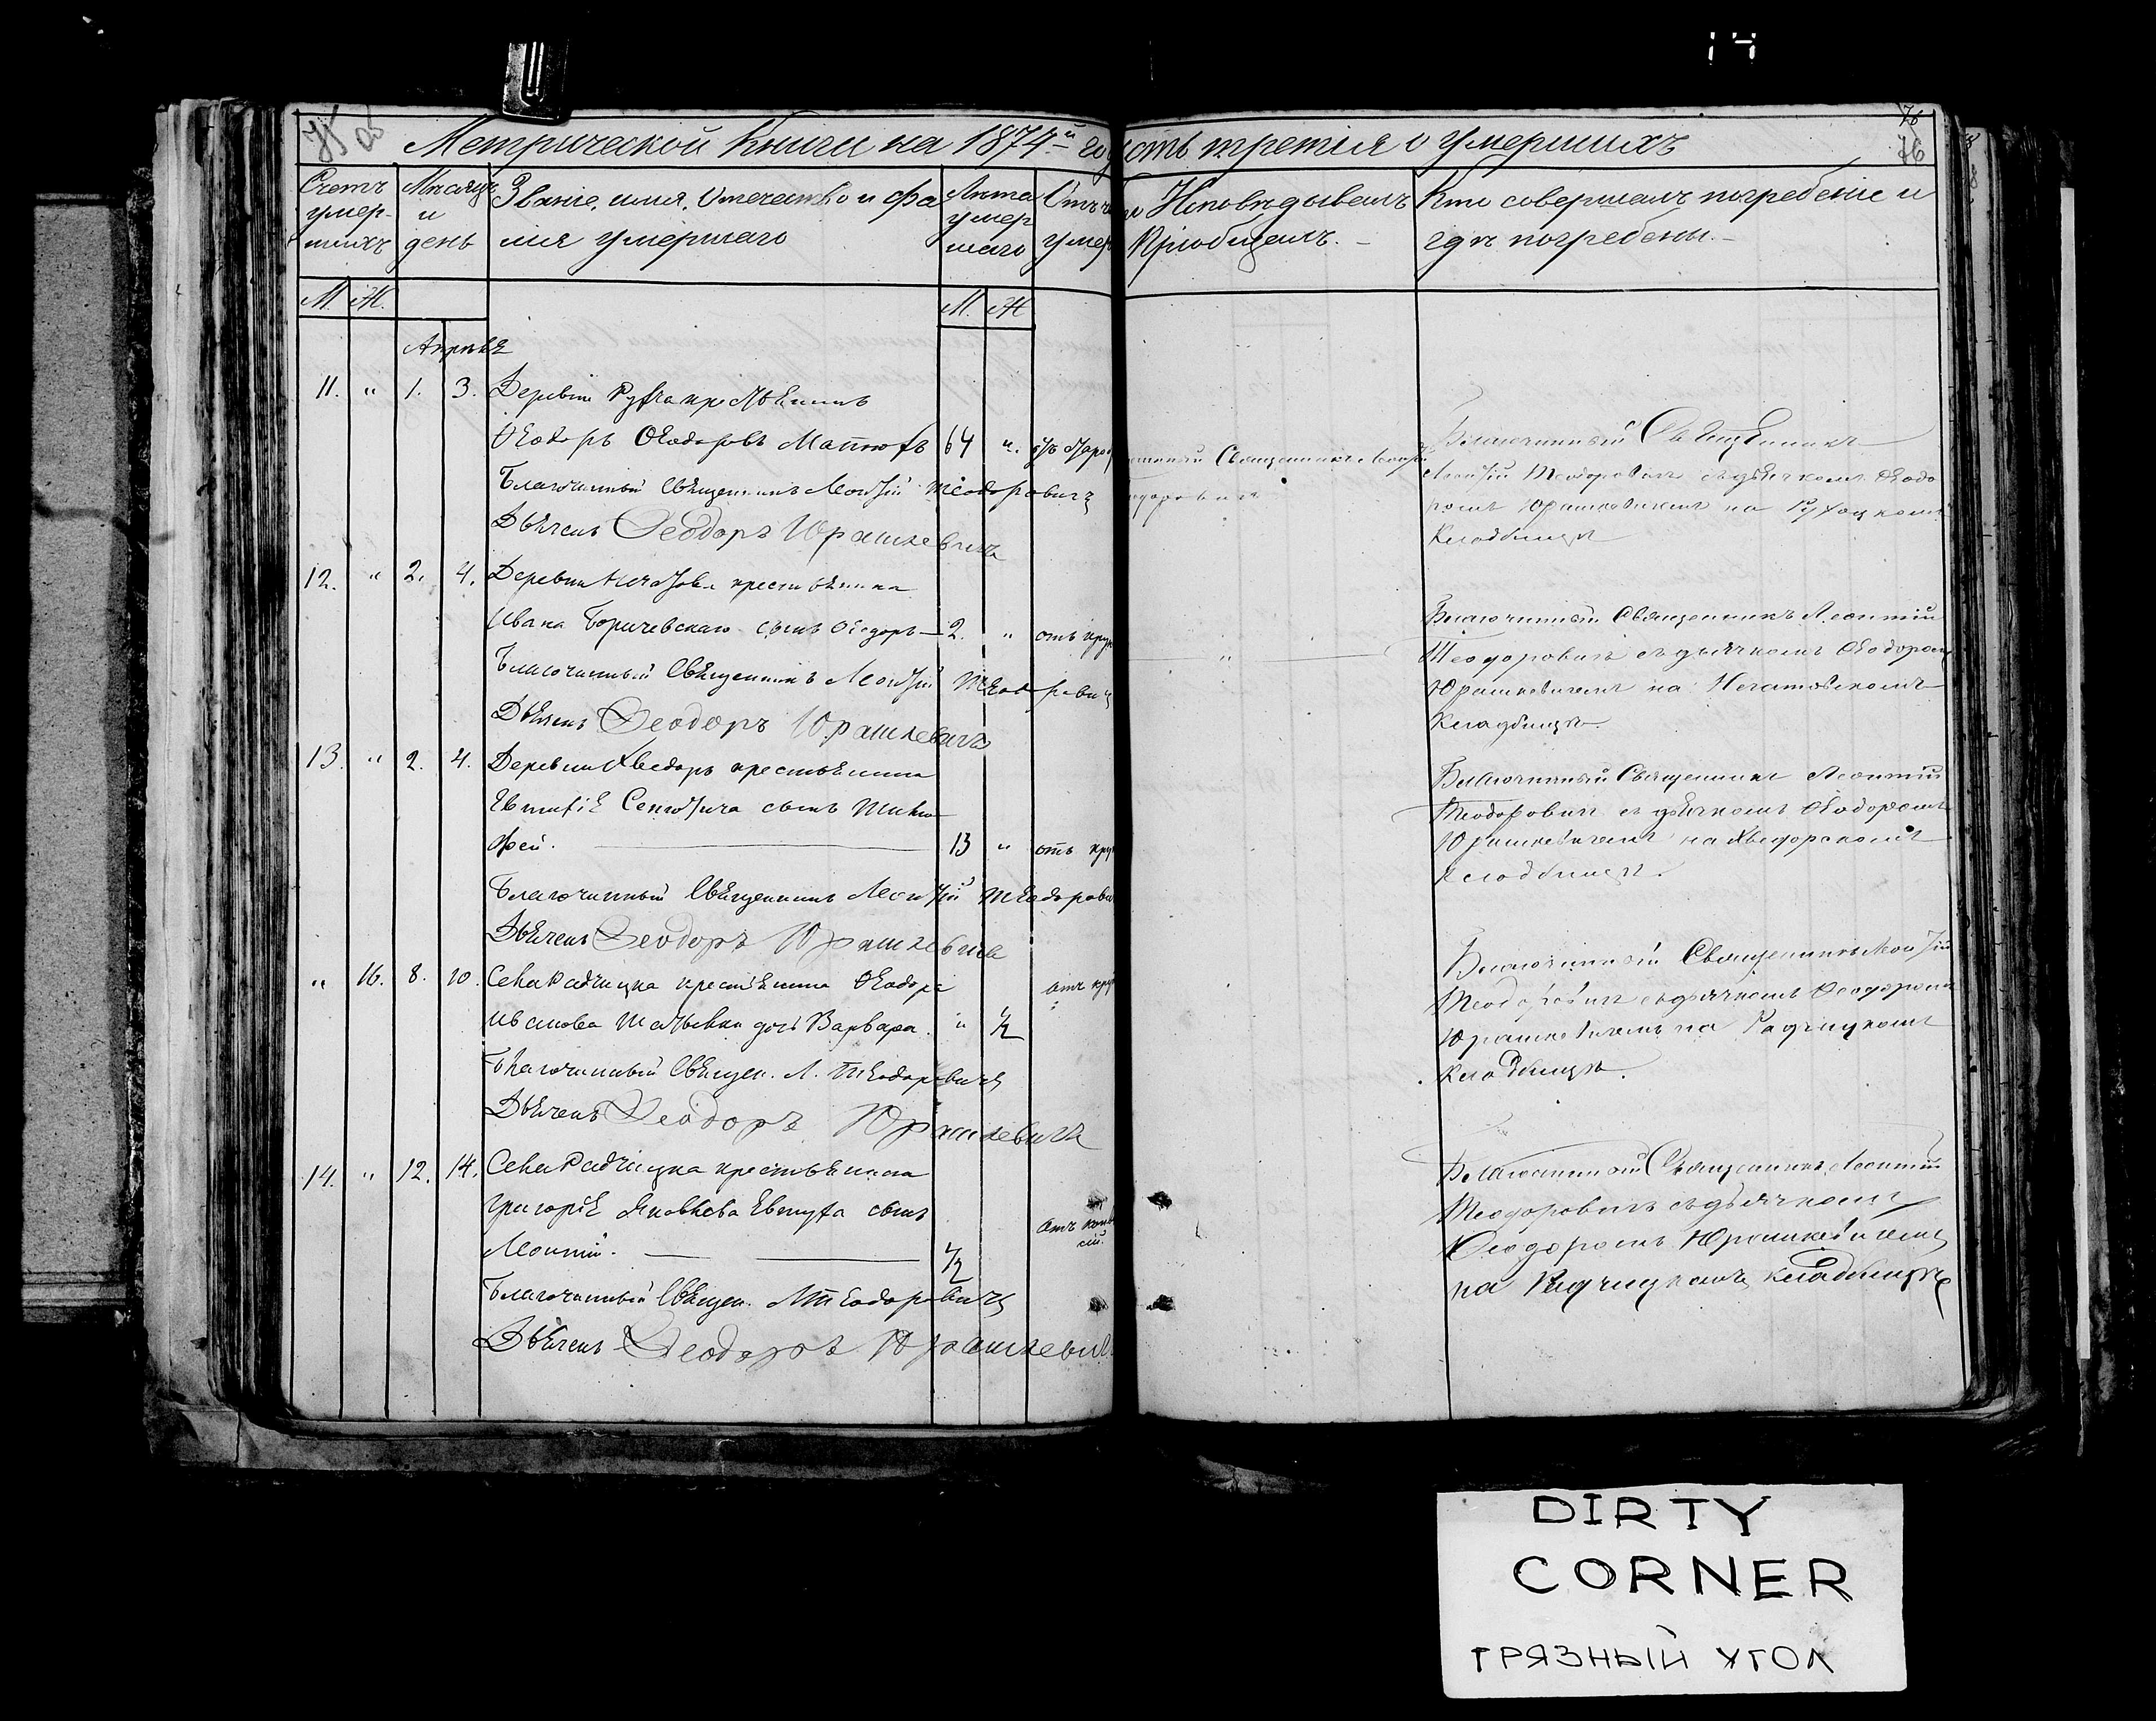 14
75
76
76
Метрической Книги на 1874-й год
сть третія о умершихъ
Счетъ умер-шихъ
Мѣсяцъ и день
Званіе, имя, Отечество и фа
мия умершаго
Лѣта умер шаго
Исповѣдывалъ
Пріобщалъ. -
Кто совершалъ погребеніе и
гдѣ погребены. -
М. Ж.
М. Ж
Апрѣля
11. " 1. 3. Деревни
Ѳеодоръ Ѳеодоровъ 64 ".
Благочинный Священникъ Леонтій Теодоровичъ
Дьячекъ Ѳеодоръ Юрашкевичъ
Священникъ
Благочинный Священникъ
Леонтій Теодоровичъ съ дьячкомъ Ѳеодо
ромъ Юрашкевичемъ на
Кладбищѣ
12. " 2. 4. Деревни крестьянина
Ивана Боричевскаго сынъ Ѳеодоръ — 2. " отъ
Благочинный Священникъ Леонтій Теодорович
Дьячекъ Ѳеодоръ Юрашкевичъ
Благочинный Священникъ Леонтій
Теодоровичъ съ дьячкомъ Ѳеодоромъ
Юрашкевичемъ на
Кладбищѣ.
13. " 2. 4. Деревни Хведоръ крестьянина
сынъ Тимо
фей. 13 " отъ
Благочинный Священникъ Леонтій Теодорови
Дьячекъ Ѳеодоръ Юрашкевичъ
Благочинный Священникъ Леонтій
Теодоровичъ съ дьячкомъ Ѳеодоромъ
Юрашкевичемъ на Хведорскомъ
Кладбищѣ.
" 16. 8. 10. Села Радчицка крестьянина Ѳеодора
Иванова дочь Варвара. " 1/2
Благочинный Священ. Л. Теодоровичъ
Дьячекъ Ѳеодоръ Юрашкевичъ
Благочинный Священникъ Леонтій
Теодоровичъ съ дьячкомъ Ѳеодоромъ
Юрашкевичемъ на Радчицкомъ
кладбищѣ.
14. " 12. 14. Села Радчицка крестьянина
Григорія Яковлева сынъ
Леонтій. 1/2
Благочинный Священ. Л Теодоровичъ
Дьячекъ Ѳеодоръ Юрашкевич
Благочинный Священникъ Леонтій
Теодоровичъ съ дьячкомъ
Ѳеодоромъ Юрашкевичемъ
на Радчицкомъ кладбищѣ
DIRTY
CORNER
ГРЯЗНЫЙ УГОЛ